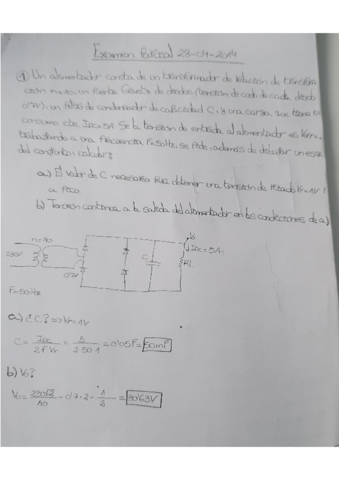 Examen Parcial 28-04-2014
① Un alimentador consta de un transformador de relación de transform
ación n=10, un puente Gaetz de diodos (tensión de codo de cada diodo
0'7V), un filtro de condensador de capacidad C, y una carga que tiene un
consumo de Idc=5A. Se la tensión de entrada al alimentador es
trabajando a una frecuencia F=50Hz, se pide, además de dibujar un esque
del conjunto, calcular:
a) El valor de C necesario para obtener una tensión de rizado Vr=1V
a pico
b) Tensión continua a la salida del alimentador en las condiciones de a)
n=10
Vo
Idc=5A
230V
C
RL
0'7V
F=50Hz
a) ¿C? => Vr=1V
C = Idc / 2F Vr = 5 / 2·50·1 = 0'05F = 50mF
b) Vo?
Vo = 230√2 / 10 - 0'7·2 - 1 / 2 = 30'63V